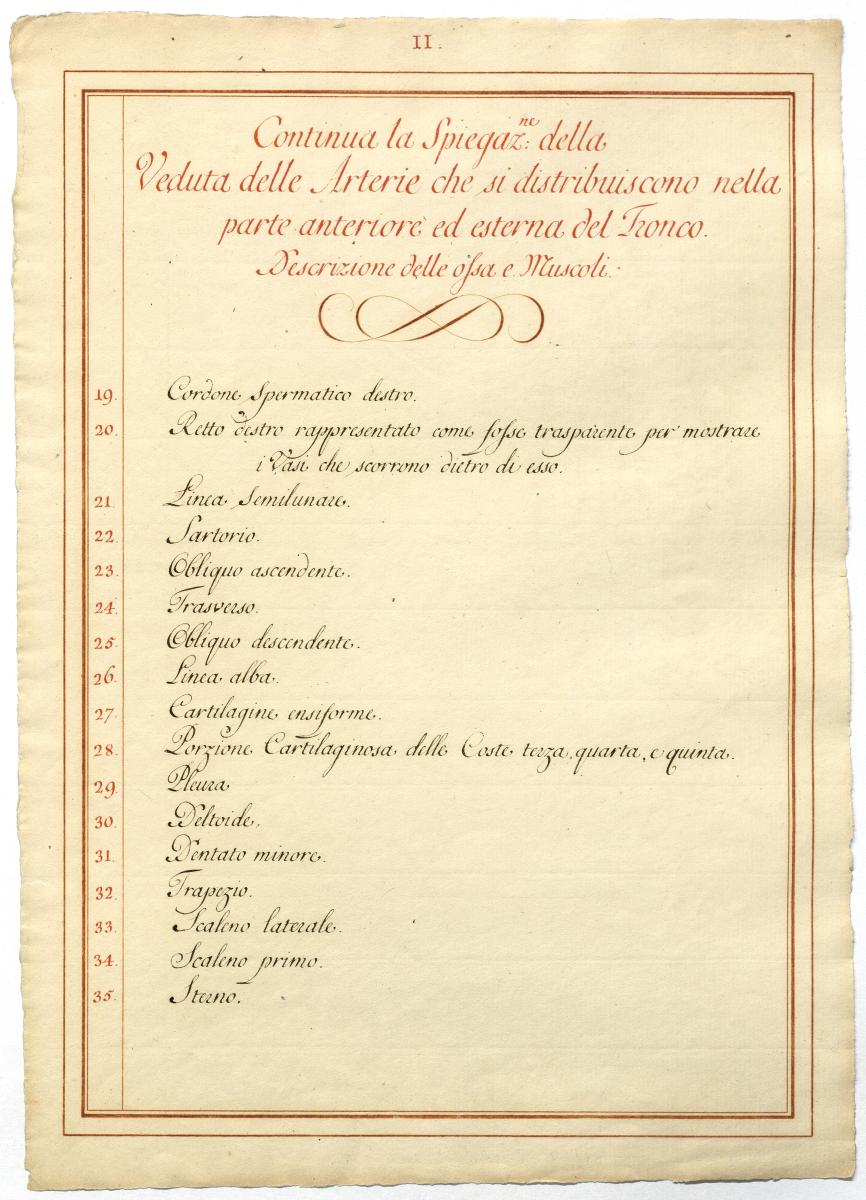 II.
Continua la Spiegaz.ne: della
Veduta delle Arterie che si distribuiscono nella
parte anteriore ed esterna del Tronco.
Descrizione delle ossa e Muscoli.
19. Cordone Spermatico destro.
20. Retto destro rappresentato come fosse trasparente per mostrare
i Vasi che scorrono dietro di esso.
21. Linea Semilunare.
22. Sartorio.
23. Obliquo ascendente.
24. Trasverso.
25. Obliquo descendente.
26. Linea alba.
27. Cartilagine ensiforme.
28. Porzione Cartilaginosa delle Coste terza, quarta, e quinta.
29. Pleura
30. Deltoide.
31. Dentato minore.
32. Trapezio.
33. Scaleno laterale.
34. Scaleno primo.
35. Sterno.